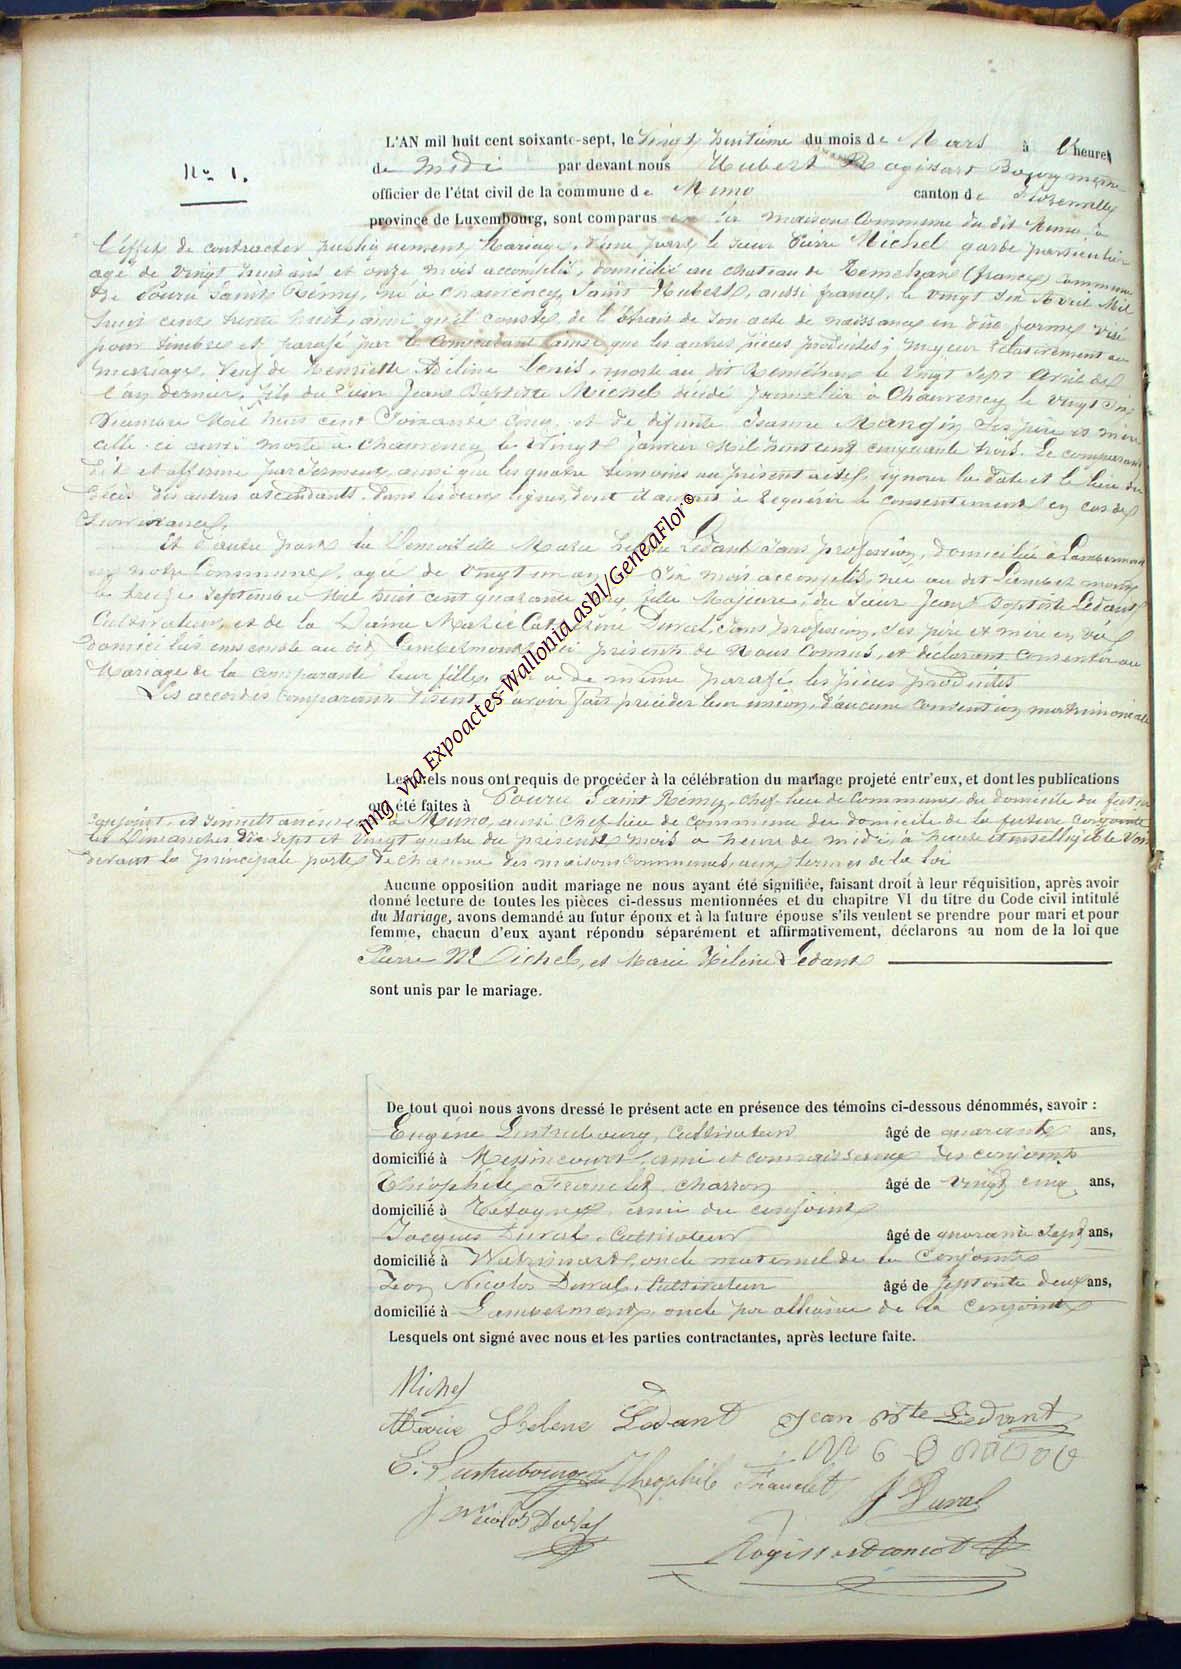 No 1.
L'AN mil huit cent soixante-sept, le Vingt huitième du mois de Mars à l'heure
de midi par devant nous Hubert Rogissart Bourgmestre
officier de l'état civil de la commune de Muno canton de Florenville
province de Luxembourg, sont comparus en la maison Commune du dit Muno à
l'effet de contracter publiquement Mariage, d'une part, le sieur Pierre Michel garde particulier
agé de vingt huit ans et onze mois accomplis, domicilié au chateau de (france) commune
de Pouru Saint Rémy, né à Chauvency Saint Hubert, aussi france, le vingt Avril Mil
huit cent trente huit, ainsi qu'il conste de l'extrait de son acte de naissance en due forme visé
pour timbre et parafé par le Comparant ainsi que les autres pièces produites; majeur relativement au
mariage, Veuf de Henriette Adéline morte au dit le Vingt Sept Avril de
l'an dernier, fils du Sieur Jean Baptiste Michel décédé à Chauvency le vingt
Mil huit cent Soixante Cinq, et de défunte Mangin ses père et mère
celle-ci aussi morte à Chauvency le Vingt Janvier Mil huit cent cinquante trois. Le comparant
dit et affirme par serment, ainsi que les quatre témoins au présent acte, ignorer la date et le lieu du
décès des autres ascendants, dans les deux lignes, dont il aurait à requérir le consentement en cas de
survivance.
Et d'autre part la Demoiselle Marie Hélène Ledant sans profession, domiciliée à Lambermont
en notre Commune, agée de vingt un ans mois accomplis, née au dit Lambermont
le treize Septembre Mil huit cent quarante cinq fille Majeure, du Sieur Jean Baptiste Ledant
Cultivateur, et de la Dame Marie Catherine Duval, sans profession, ses père et mère en vie
domiciliés ensemble au dit Lambermont, ici présents de Nous Connus, et déclarant Consentir au
Mariage de la Comparante leur fille, a de même parafé les pièces produites
Les accordés Comparants avoir fait précéder leur union, d'aucune Convention matrimoniale
Lesquels nous ont requis de procéder à la célébration du mariage projeté entr'eux, et dont les publications
ont été faites à Pouru Saint Remy, chef-lieu de Commune du domicile du futur
conjoint, et simultanément à Muno, aussi Chef-lieu de commune du domicile de la future conjointe
les Dimanches Dix Sept et Vingt quatre du présent mois à heure de midi, à haute et intelligible Voix
devant la principale porte de chacune des maisons communes, aux termes de la loi
Aucune opposition audit mariage ne nous ayant été signifiée, faisant droit à leur réquisition, après avoir
donné lecture de toutes les pièces ci-dessus mentionnées et du chapitre VI du titre du Code civil intitulé
du Mariage, avons demandé au futur époux et à la future épouse s'ils veulent se prendre pour mari et pour
femme, chacun d'eux ayant répondu séparément et affirmativement, déclarons au nom de la loi que
Pierre Michel, et Marie Hélène Ledant
sont unis par le mariage.
De tout quoi nous avons dressé le présent acte en présence des témoins ci-dessous dénommés, savoir :
Eugène Lustrubourg, Cultivateur âgé de quarante ans,
domicilié à Messincourt, ami et connaissance des conjoints
Théophile Franclet charron âgé de vingt cinq ans,
domicilié à Tétaigne, ami du conjoint
Jacques Duval, Cultivateur âgé de quarante Sept ans,
domicilié à Watrinsart, oncle maternel de la Conjointe
Jean Nicolas Duval, Cultivateur âgé de septante deux ans,
domicilié à Lambermont, oncle par alliance de la Conjointe
Lesquels ont signé avec nous et les parties contractantes, après lecture faite.
Michel
Marie Helene Ledant Jean Bte Ledant
E. Lustrubourg Théophile Franclet J Duval
j nicolas Duval
img via Expoactes-Wallonia asbl/GeneaFlor©